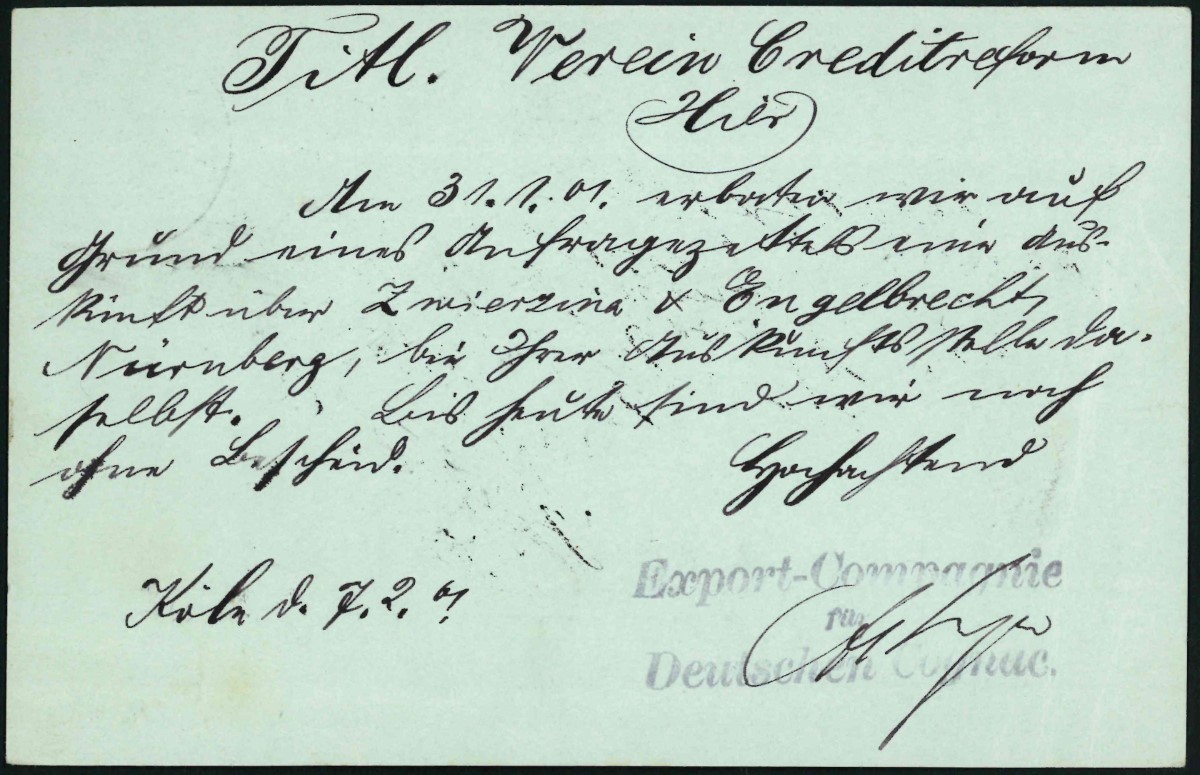 Titl. Verein Creditreform
Hier
Am 31.1.01. erbaten wir auf
Grund eines Anfragezettels eine Aus-
kunft über Zwierzina & Engelbrecht,
Nürnberg, bei Ihrer Auskunftsstelle da-
selbst. Bis heute sind wir noch
ohne Bescheid.
Hochachtend
Export-Compagnie
für
Deutschen Cognac.
Köln d. 7.2.01